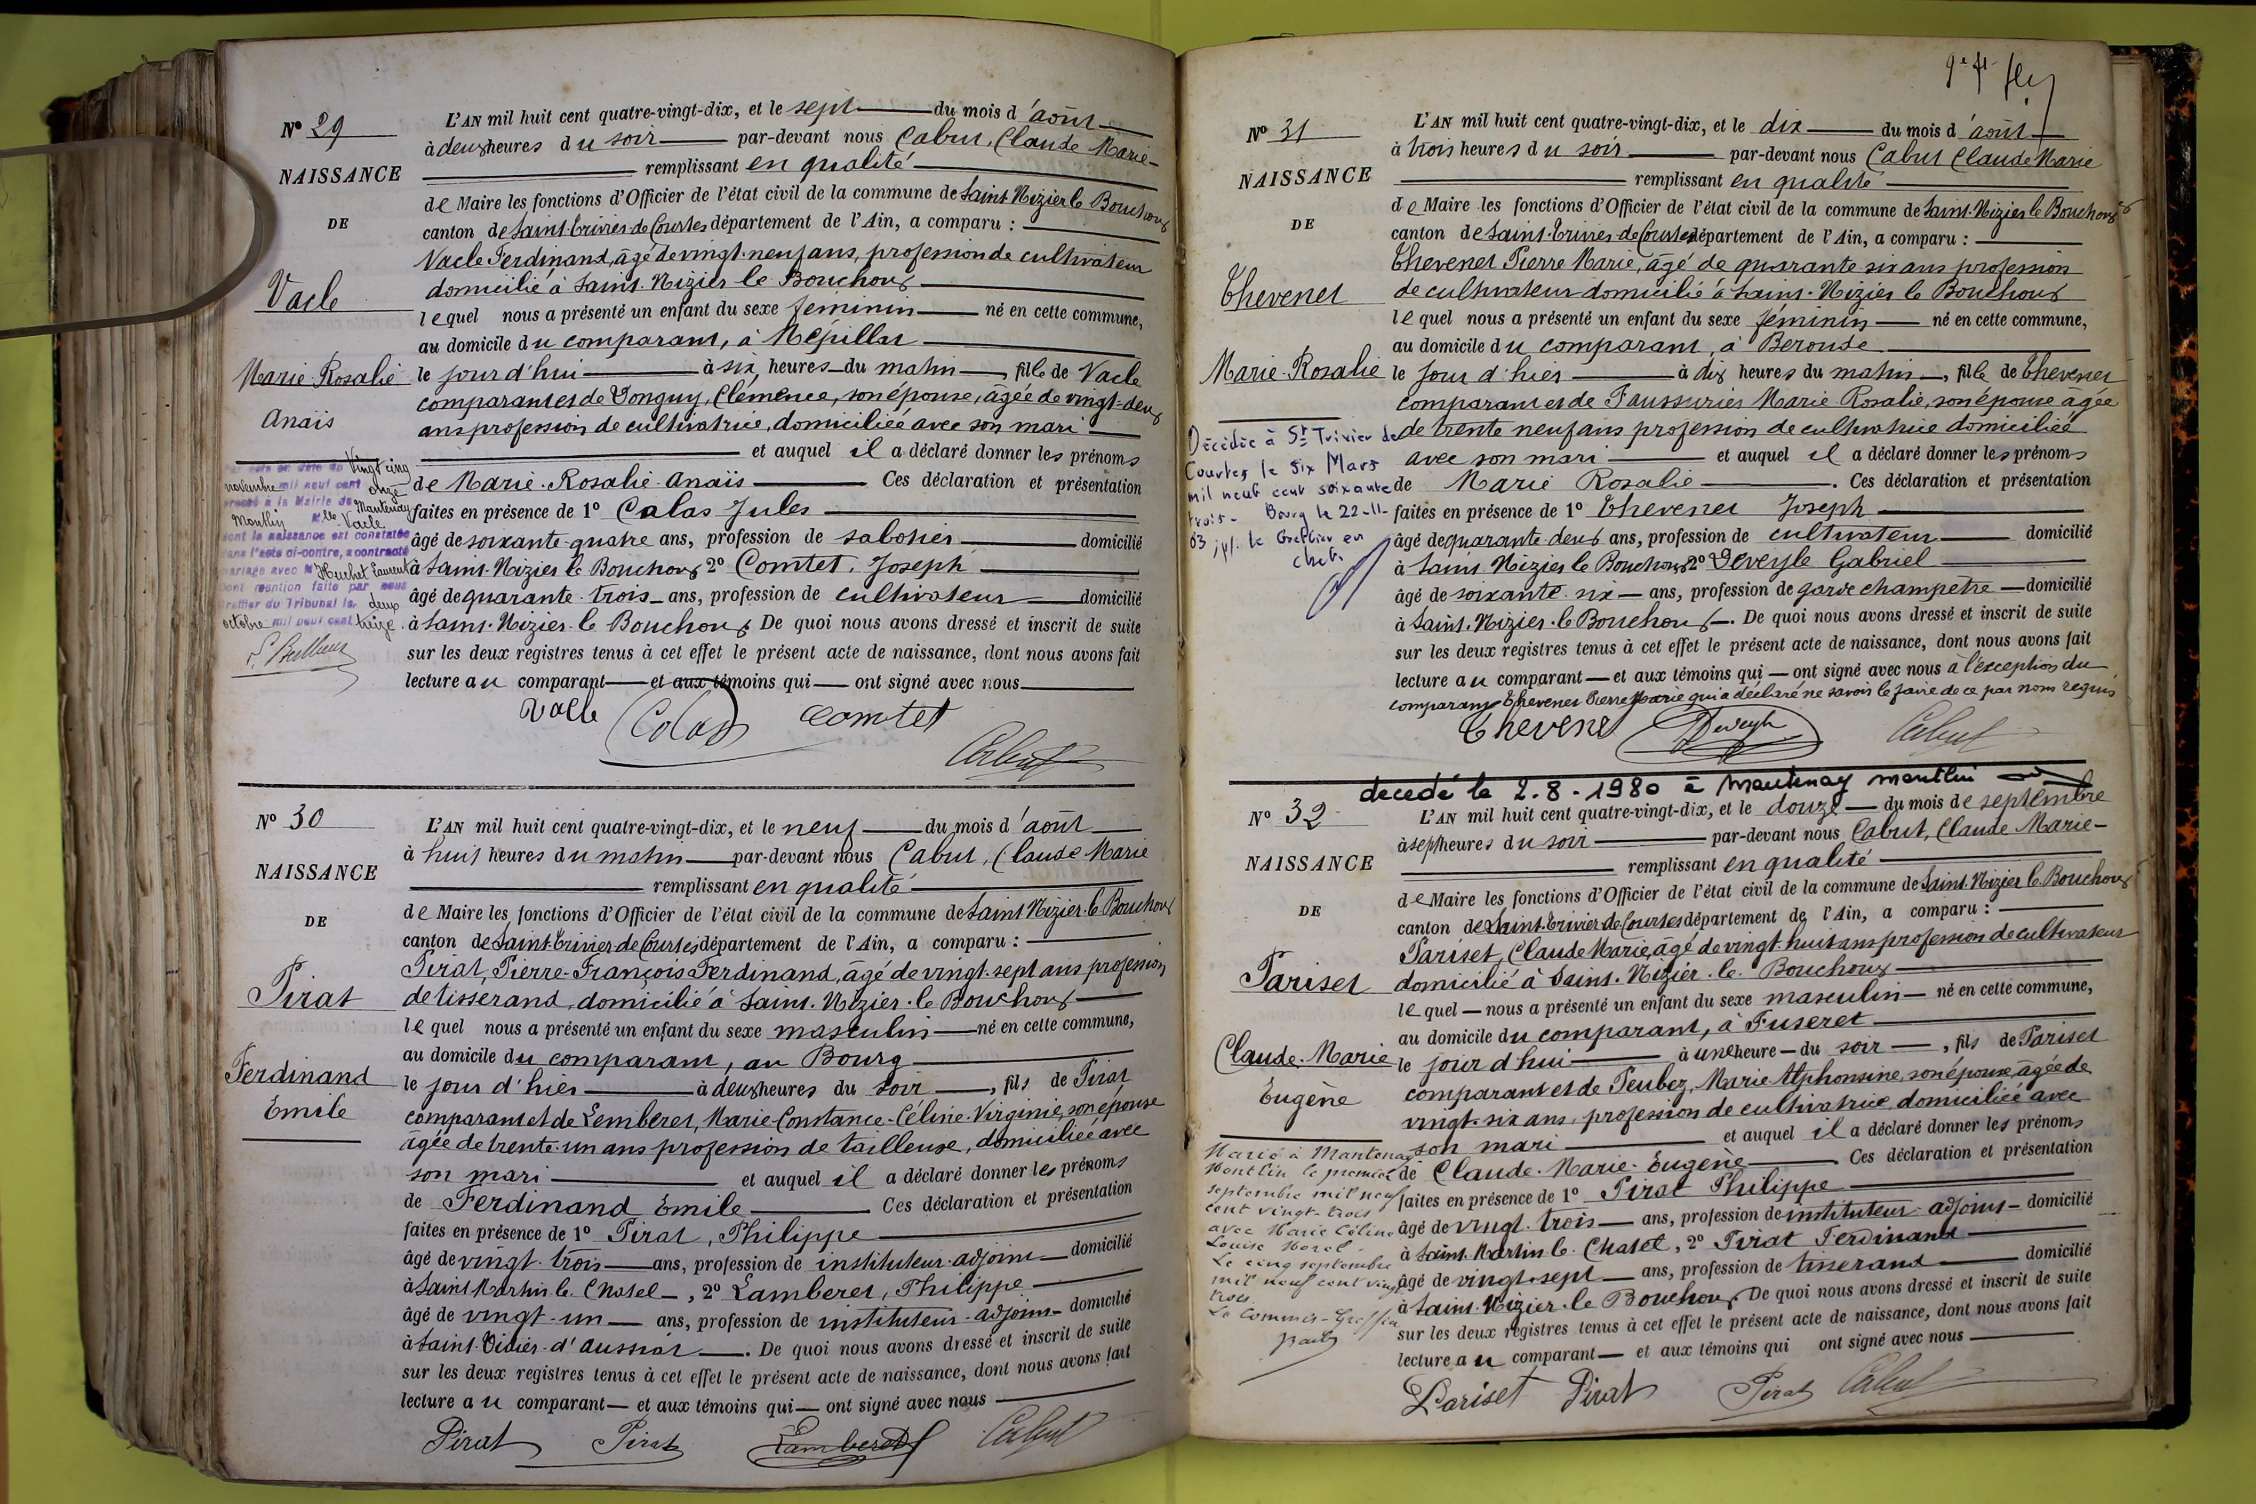 N° 29
NAISSANCE
DE
Vacle
Marie Rosalie
Anaïs
L'AN mil huit cent quatre-vingt-dix, et le sept du mois d'août
à deux heures du soir par-devant nous Cabut, Claude Marie
remplissant en qualité
de Maire les fonctions d'Officier de l'état civil de la commune de Saint Nizier le Bouchoux
canton de Saint-Trivier de Courtes département de l'Ain, a comparu :
Vacle Ferdinand, âgé de vingt-neuf ans, profession de cultivateur
domicilié à Saint-Nizier le Bouchoux
lequel nous a présenté un enfant du sexe féminin né en cette commune,
au domicile du comparant, à Népillat
le jour d'hui à six heures du matin, fille de Vacle
comparant et de Donguy, Clémence, son épouse, âgée de vingt-deux
ans profession de cultivatrice, domiciliée avec son mari
et auquel il a déclaré donner les prénoms
de Marie-Rosalie-Anaïs Ces déclaration et présentation
faites en présence de 1° Calas Jules
âgé de soixante-quatre ans, profession de sabotier domicilié
à Saint-Nizier le Bouchoux 2° Comtet, Joseph
âgé de quarante-trois ans, profession de cultivateur domicilié
à Saint-Nizier-le Bouchoux De quoi nous avons dressé et inscrit de suite
sur les deux registres tenus à cet effet le présent acte de naissance, dont nous avons fait
lecture au comparant et aux témoins qui ont signé avec nous
Vacle Colas Comtet
Cabut
Vingt cinq
novembre mil neuf cent onze
à la Mairie de Mantenay
Montlin Mlle Vacle
dont la naissance est constatée
dans l'acte ci-contre, a contracté
mariage avec M Huchet Laurent
Dont mention faite par nous
Greffier du Tribunal le deux
octobre mil neuf cent treize.
N° 30
NAISSANCE
DE
Pirat
Ferdinand
Emile
L'AN mil huit cent quatre-vingt-dix, et le neuf du mois d'août
à huit heures du matin par-devant nous Cabut, Claude Marie
remplissant en qualité
de Maire les fonctions d'Officier de l'état civil de la commune de Saint Nizier-le Bouchoux
canton de Saint-Trivier de Courtes département de l'Ain, a comparu :
Pirat, Pierre-François Ferdinand, âgé de vingt-sept ans profession
de tisserand, domicilié à Saint-Nizier-le Bouchoux
lequel nous a présenté un enfant du sexe masculin né en cette commune,
au domicile du comparant, au Bourg
le jour d'hier à deux heures du soir, fils de Pirat
comparant et de Lemberet, Marie-Constance-Céline-Virginie, son épouse
âgée de trente-un ans profession de tailleuse, domiciliée avec
son mari et auquel il a déclaré donner les prénoms
de Ferdinand Emile Ces déclaration et présentation
faites en présence de 1° Pirat, Philippe
âgé de vingt-trois ans, profession de instituteur-adjoint domicilié
à Saint Martin le Chatel, 2° Lamberet, Philippe
âgé de vingt-un ans, profession de instituteur-adjoint domicilié
à Saint-Didier-d'Aussiat. De quoi nous avons dressé et inscrit de suite
sur les deux registres tenus à cet effet le présent acte de naissance, dont nous avons fait
lecture au comparant et aux témoins qui ont signé avec nous
Pirat Pirat Lamberet Cabut
N° 31
NAISSANCE
DE
Thevenet
Marie-Rosalie
L'AN mil huit cent quatre-vingt-dix, et le dix du mois d'août
à trois heures du soir par-devant nous Cabut Claude Marie
remplissant en qualité
de Maire les fonctions d'Officier de l'état civil de la commune de Saint-Nizier le Bouchoux
canton de Saint-Trivier de Courtes département de l'Ain, a comparu :
Thevenet Pierre Marie, âgé de quarante six ans profession
de cultivateur domicilié à Saint-Nizier le Bouchoux
lequel nous a présenté un enfant du sexe féminin né en cette commune,
au domicile du comparant, à Beroude
le jour d'hier à dix heures du matin, fille de Thevenet
comparant et de Faussurier Marie Rosalie, son épouse âgée
de trente neuf ans profession de cultivatrice domiciliée
avec son mari et auquel il a déclaré donner les prénoms
de Marie Rosalie. Ces déclaration et présentation
faites en présence de 1° Thevenet Joseph
âgé de quarante-deux ans, profession de cultivateur domicilié
à Saint-Nizier le Bouchoux 2° Deveyle Gabriel
âgé de soixante six ans, profession de garde champetre domicilié
à Saint-Nizier-le Bouchoux. De quoi nous avons dressé et inscrit de suite
sur les deux registres tenus à cet effet le présent acte de naissance, dont nous avons fait
lecture au comparant et aux témoins qui ont signé avec nous à l'exception du
comparant Thevenet Pierre Marie qui a déclaré ne savoir le faire de ce par nous requis
Thevenet Deveyle Cabut
Décédée à St Trivier de
Courtes le six Mars
mil neuf cent soixante
trois- Bourg le 22-11-
63 le Greffier en
chef.
décédé le 2.8.1980 à Mantenay montlin
N° 32
NAISSANCE
DE
Pariset
Claude-Marie
Eugène
L'AN mil huit cent quatre-vingt-dix, et le douze du mois de septembre
à sept heures du soir par-devant nous Cabut, Claude Marie
remplissant en qualité
de Maire les fonctions d'Officier de l'état civil de la commune de Saint-Nizier le Bouchoux
canton de Saint-Trivier de Courtes département de l'Ain, a comparu :
Pariset, Claude Marie, âgé de vingt-huit ans profession de cultivateur
domicilié à Saint-Nizier-le-Bouchoux
lequel nous a présenté un enfant du sexe masculin né en cette commune,
au domicile du comparant, à Fuseret
le jour d'hui à une heure du soir, fils de Pariset
comparant et de Teubez, Marie Alphonsine, son épouse, âgée de
vingt-six ans, profession de cultivatrice, domiciliée avec
son mari et auquel il a déclaré donner les prénoms
de Claude-Marie-Eugène. Ces déclaration et présentation
faites en présence de 1° Pirat Philippe
âgé de vingt-trois ans, profession de instituteur-adjoint domicilié
à Saint-Martin le Chatel, 2° Pirat Ferdinand
âgé de vingt-sept ans, profession de tisserand domicilié
à Saint-Nizier-le Bouchoux De quoi nous avons dressé et inscrit de suite
sur les deux registres tenus à cet effet le présent acte de naissance, dont nous avons fait
lecture au comparant et aux témoins qui ont signé avec nous
Pariset Pirat Pirat Cabut
Marié à Mantenay
Montlin le premier
septembre mil neuf
cent vingt-trois
avec Marie Céline
Louise Morel.
Le cinq septembre
mil neuf cent vingt
trois
Le Commis-Greffier